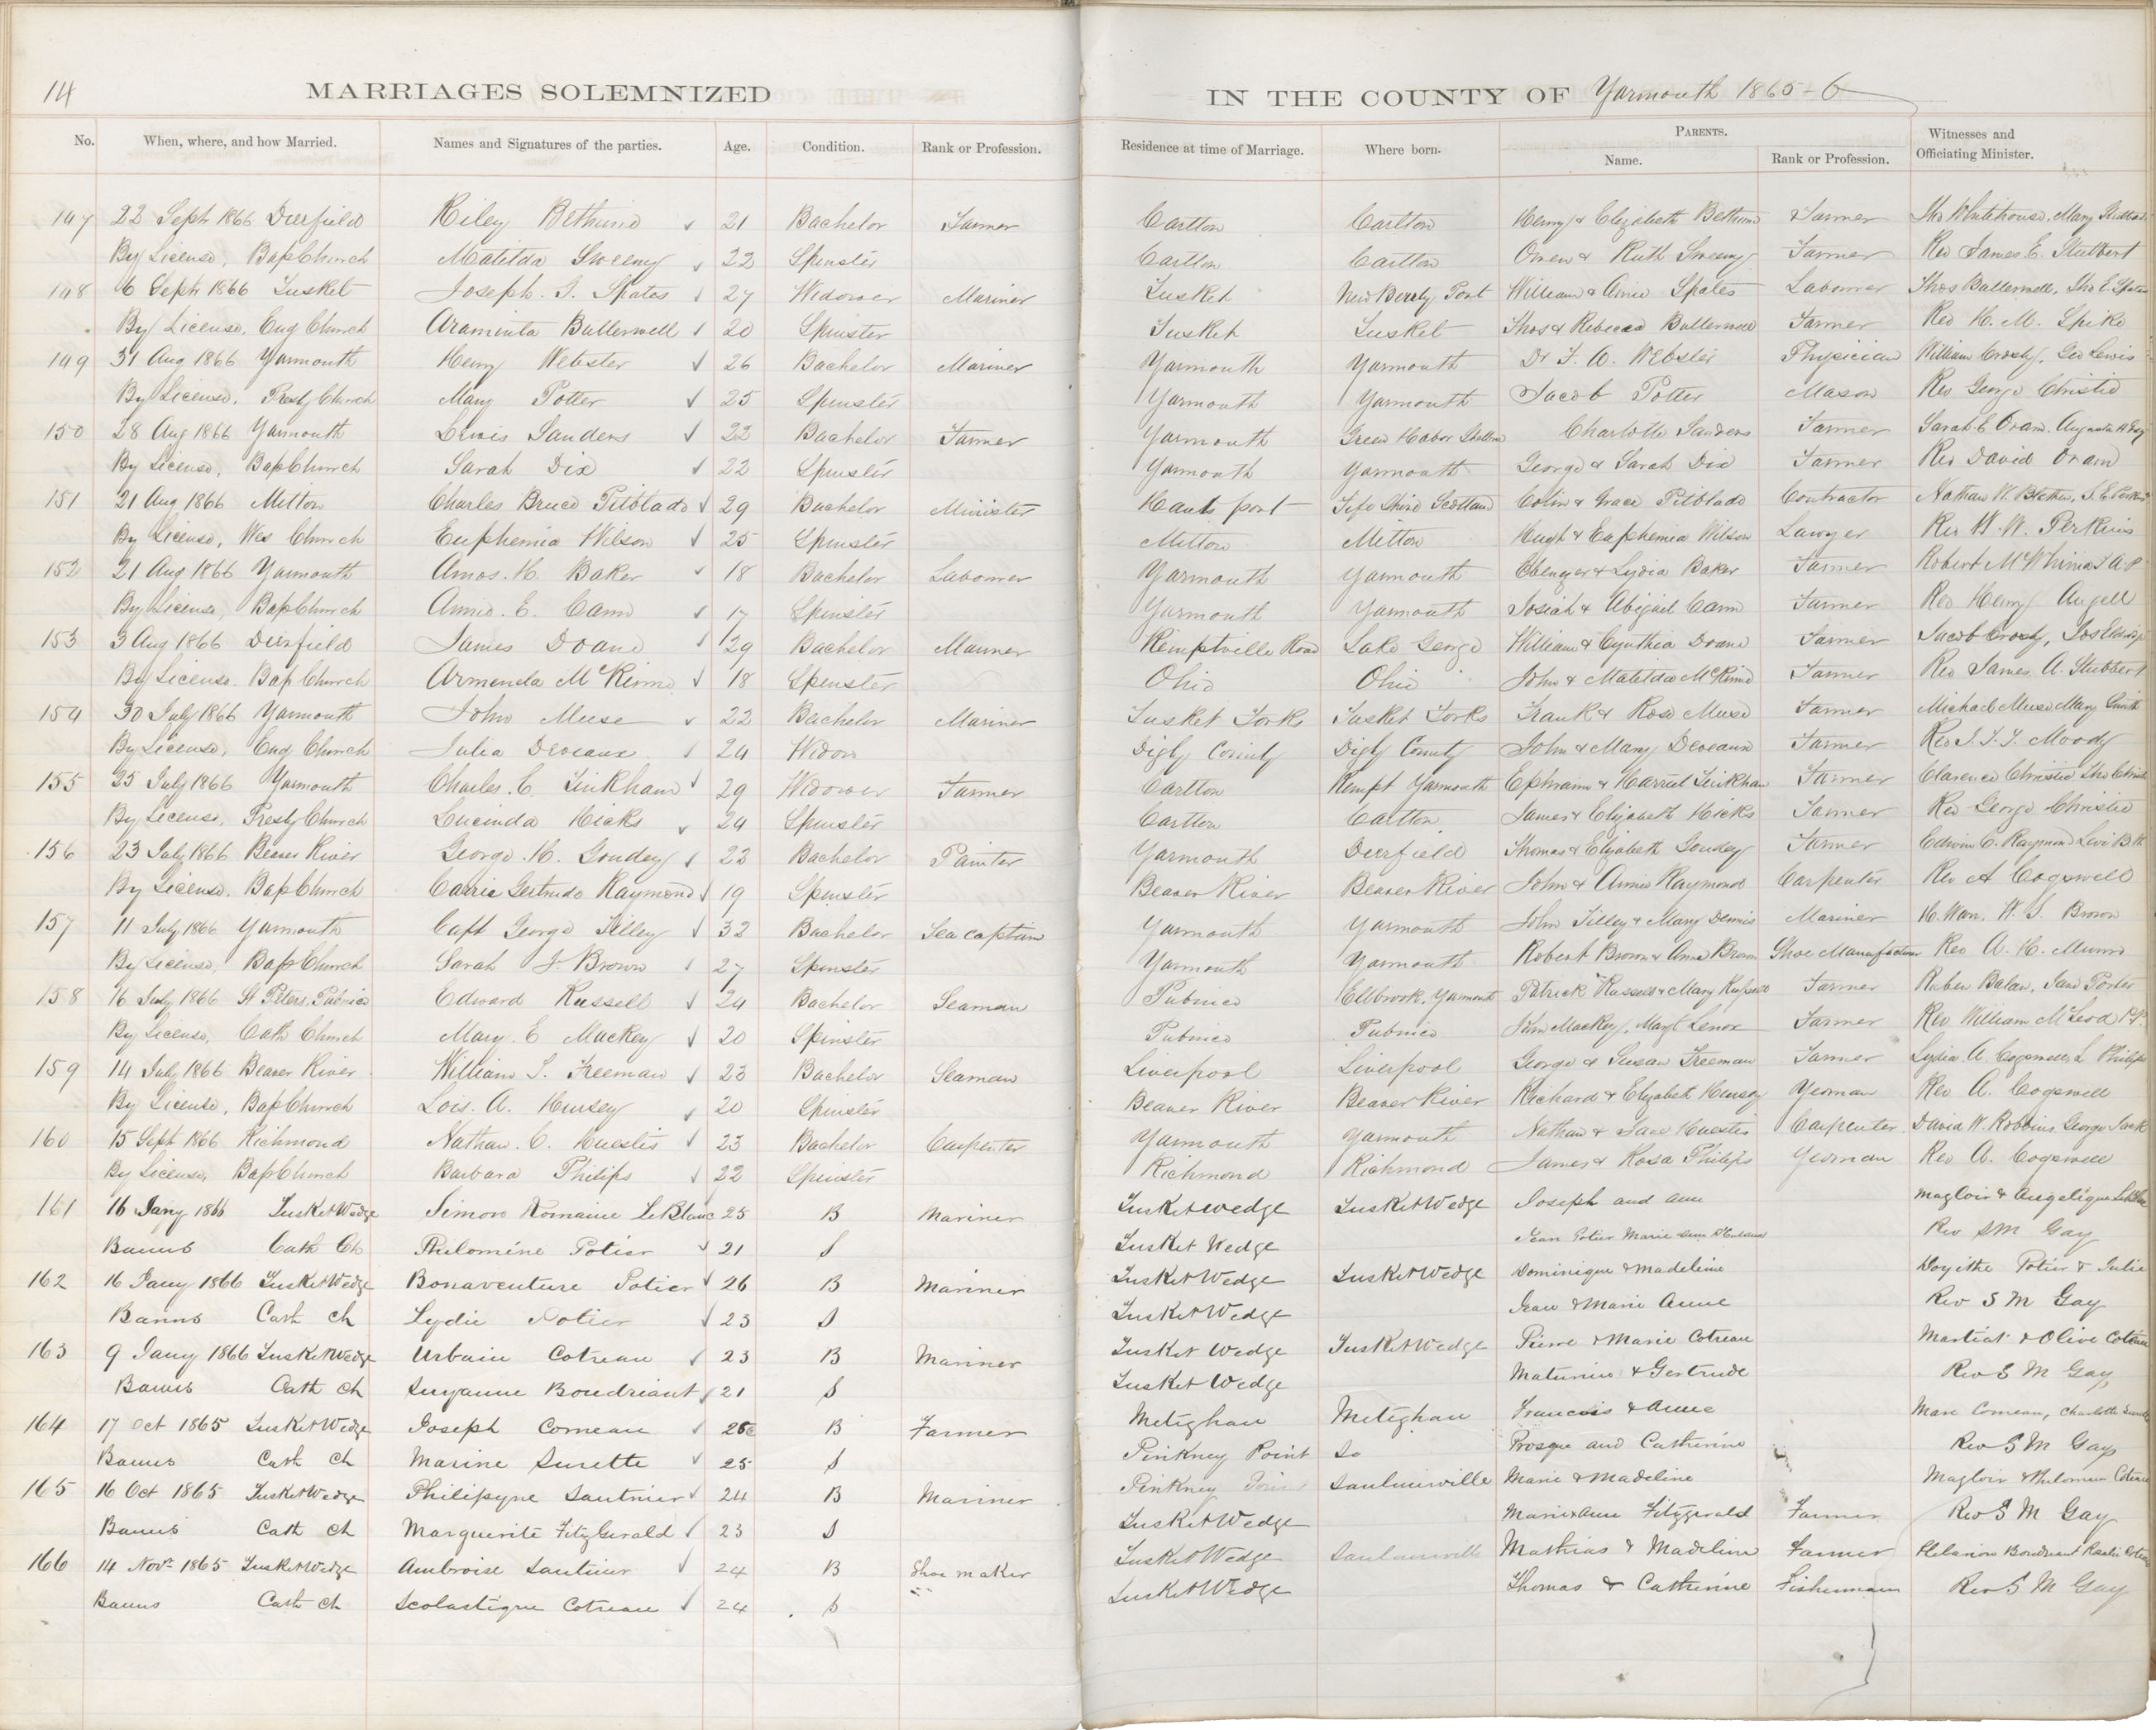 14
MARRIAGES SOLEMNIZED IN THE COUNTY OF Yarmouth 1865-6
No. When, where, and how Married. Names and Signatures of the parties. Age. Condition. Rank or Profession. Residence at time of Marriage. Where born. PARENTS. Name. Rank or Profession. Witnesses and Officiating Minister.
147 22 Sept 1866 Deerfield Riley Bethune 21 Bachelor Farmer Carlton Carlton Henry & Elizabeth Bethune Farmer Jno Whitehouse, Mary
By License, Bap Church Matilda Sweeny 22 Spinster Carlton Carlton Owen & Ruth Sweeny Farmer Rev James E. Stubbert
148 6 Sept 1866 Tusket Joseph. I. Spates 27 Widower Mariner Tusket New Port William & Annie Spates Labourer Thos Butterwell, Jno E Spates
By License, Eng Church Araminta Butterwell 20 Spinster Tusket Tusket Thos & Rebecca Butterwell Farmer Rev H. M. Spike
149 31 Aug 1866 Yarmouth Henry Webster 26 Bachelor Mariner Yarmouth Yarmouth Dr F. A. Webster Physician William Crosby, Geo Lewis
By License, Presby Church Mary Potter 25 Spinster Yarmouth Yarmouth Jacob Potter Mason Rev George Christie
150 28 Aug 1866 Yarmouth Lewis Sanders 22 Bachelor Farmer Yarmouth Green Habor Charlotte Sanders Farmer Sarah E Oram, Augusta
By License, Bap Church Sarah Dix 22 Spinster Yarmouth Yarmouth George & Sarah Dix Farmer Rev David Oram
151 21 Aug 1866 Milton Charles Bruce Pitblado 29 Bachelor Minister Hants port Fife Shire Scotland Colin & Grace Pitblado Contractor Nathan W. Blethen,
By License, Wes Church Euphemia Wilson 25 Spinster Milton Milton Hugh & Euphemia Wilson Lawyer Rev W. W. Perkins
152 21 Aug 1866 Yarmouth Amos. H. Baker 18 Bachelor Labourer Yarmouth Yarmouth Ebenezer & Lydia Baker Farmer Robert
By License, Bap Church Annie. E. Cann 17 Spinster Yarmouth Yarmouth Josiah & Abigail Cann Farmer Rev Henry Angell
153 3 Aug 1866 Deerfield James Doane 29 Bachelor Mariner Kemptville Road Lake George William & Cynthia Doane Farmer Jacob Crosby,
By License. Bap Church Armenela McKinnie 18 Spinster Ohio Ohio John & Matilda McKinnie Farmer Rev James A. Stubbert
154 30 July 1866 Yarmouth John Muse 22 Bachelor Mariner Tusket Forks Tusket Forks Frank & Rose Muse Farmer Michael Muse Mary Smith
By License, Eng Church Julia Deveaux 24 Widow Digby County Digby County John & Mary Deveaux Farmer Rev J. T. T. Moody
155 25 July 1866 Yarmouth Charles. C. Tinkham 29 Widower Farmer Carlton Kempt Yarmouth Ephraim & Harriet Tinkham Farmer Clarence Christie Jno Christie
By License, Presby Church Lucinda Hicks 24 Spinster Carlton Carlton James & Elizabeth Hicks Farmer Rev George Christie
156 23 July 1866 Beaver River George. H. Goudey 22 Bachelor Painter Yarmouth Deerfield Thomas & Elizabeth Goudey Farmer Edwin C. Raymond Levi B
By License. Bap Church Carrie Gertrude Raymond 19 Spinster Beaver River Beaver River John & Annie Raymond Carpenter Rev A Cogswell
157 11 July 1866 Yarmouth Capt George Tilley 32 Bachelor Sea captain Yarmouth Yarmouth John Tilley & Mary Dennis Mariner H. Wan, W. S. Brown
By License, Bap Church Sarah J. Brown 27 Spinster Yarmouth Yarmouth Robert Brown & Anna Brown Shoe Manufacturer Rev A. H. Munro
158 16 July 1866 St Peters Pubnico Edward Russell 24 Bachelor Seaman Pubnico Ellbrook, Yarmouth Patrick Russell & Mary Russell Farmer Ruben Balan, Jane Porter
By License, Cath Church Mary. E Mackey 20 Spinster Pubnico Pubnico John Mackey, Mary Lenox Farmer Rev William McLeod P.P.
159 14 July 1866 Beaver River William S. Freeman 23 Bachelor Seaman Liverpool Liverpool George & Susan Freeman Farmer Lydia A. Cogswell, L Philips
By License, Bap Church Lois. A. Hersey 20 Spinster Beaver River Beaver River Richard & Elizabeth Hersey Yeoman Rev A. Cogswell
160 15 Sept 1866 Richmond Nathan. C. Huestis 23 Bachelor Carpenter Yarmouth Yarmouth Nathan & Jane Huestis Carpenter David W. Robbins George
By License, Bap Church Barbara Philips 22 Spinster Richmond Richmond James & Rosa Philips Yeoman Rev A. Cogswell
161 16 Jany 1866 Tusket Wedge Simon Romaine LeBlanc 25 B Mariner Tusket wedge Tusket Wedge Joseph and Ann Magloir & Angelique LeBlanc
Banns Cath Ch Philomene Potier 21 S Tusket Wedge Jean Potier Marie Rev S M Gay
162 16 Jany 1866 Tusket Wedge Bonaventure Potier 26 B Mariner Tusket Wedge Tusket Wedge Dominique & Madeline Potier & Julie
Banns Cath ch Lydie Potier 23 S Tusket Wedge Jean & Marie Anne Rev S M Gay
163 9 Jany 1866 Tusket Wedge Urbain Cotreau 23 B Mariner Tusket Wedge Tusket Wedge Pierre & Marie Cotreau Martial & Olive Cotreau
Banns Cath ch Suzanne Boudriant 21 S Tusket Wedge Maturin & Gertrude Rev S M Gay
164 17 Oct 1865 Tusket Wedge Joseph Comeau 26 B Farmer Metighan Metighan Francois & Anne Marc Comeau, Charlotte
Banns Cath ch Marine Surette 25 S Pinkney Point Do Prosque and Catherine Rev S M Gay
165 16 Oct 1865 Tusket Wedge Philipyne Saulnier 24 B Mariner Pinkney Point Saulnierville Marie & Madeline Magloir & Philomene Cotreau
Banns Cath ch Marguerite FitzGerald 23 S Tusket Wedge Marie Ann Fitzgerald Farmer Rev S M Gay
166 14 Novr 1865 Tusket Wedge Ambroise Saulnier 24 B Shoe maker Tusket Wedge Saulnierville Mathias & Madeline Farmer Boudreau
Banns Cath ch Scolastique Cotreau 24 S Tusket Wedge Thomas & Catherine Fisherman Rev S M Gay